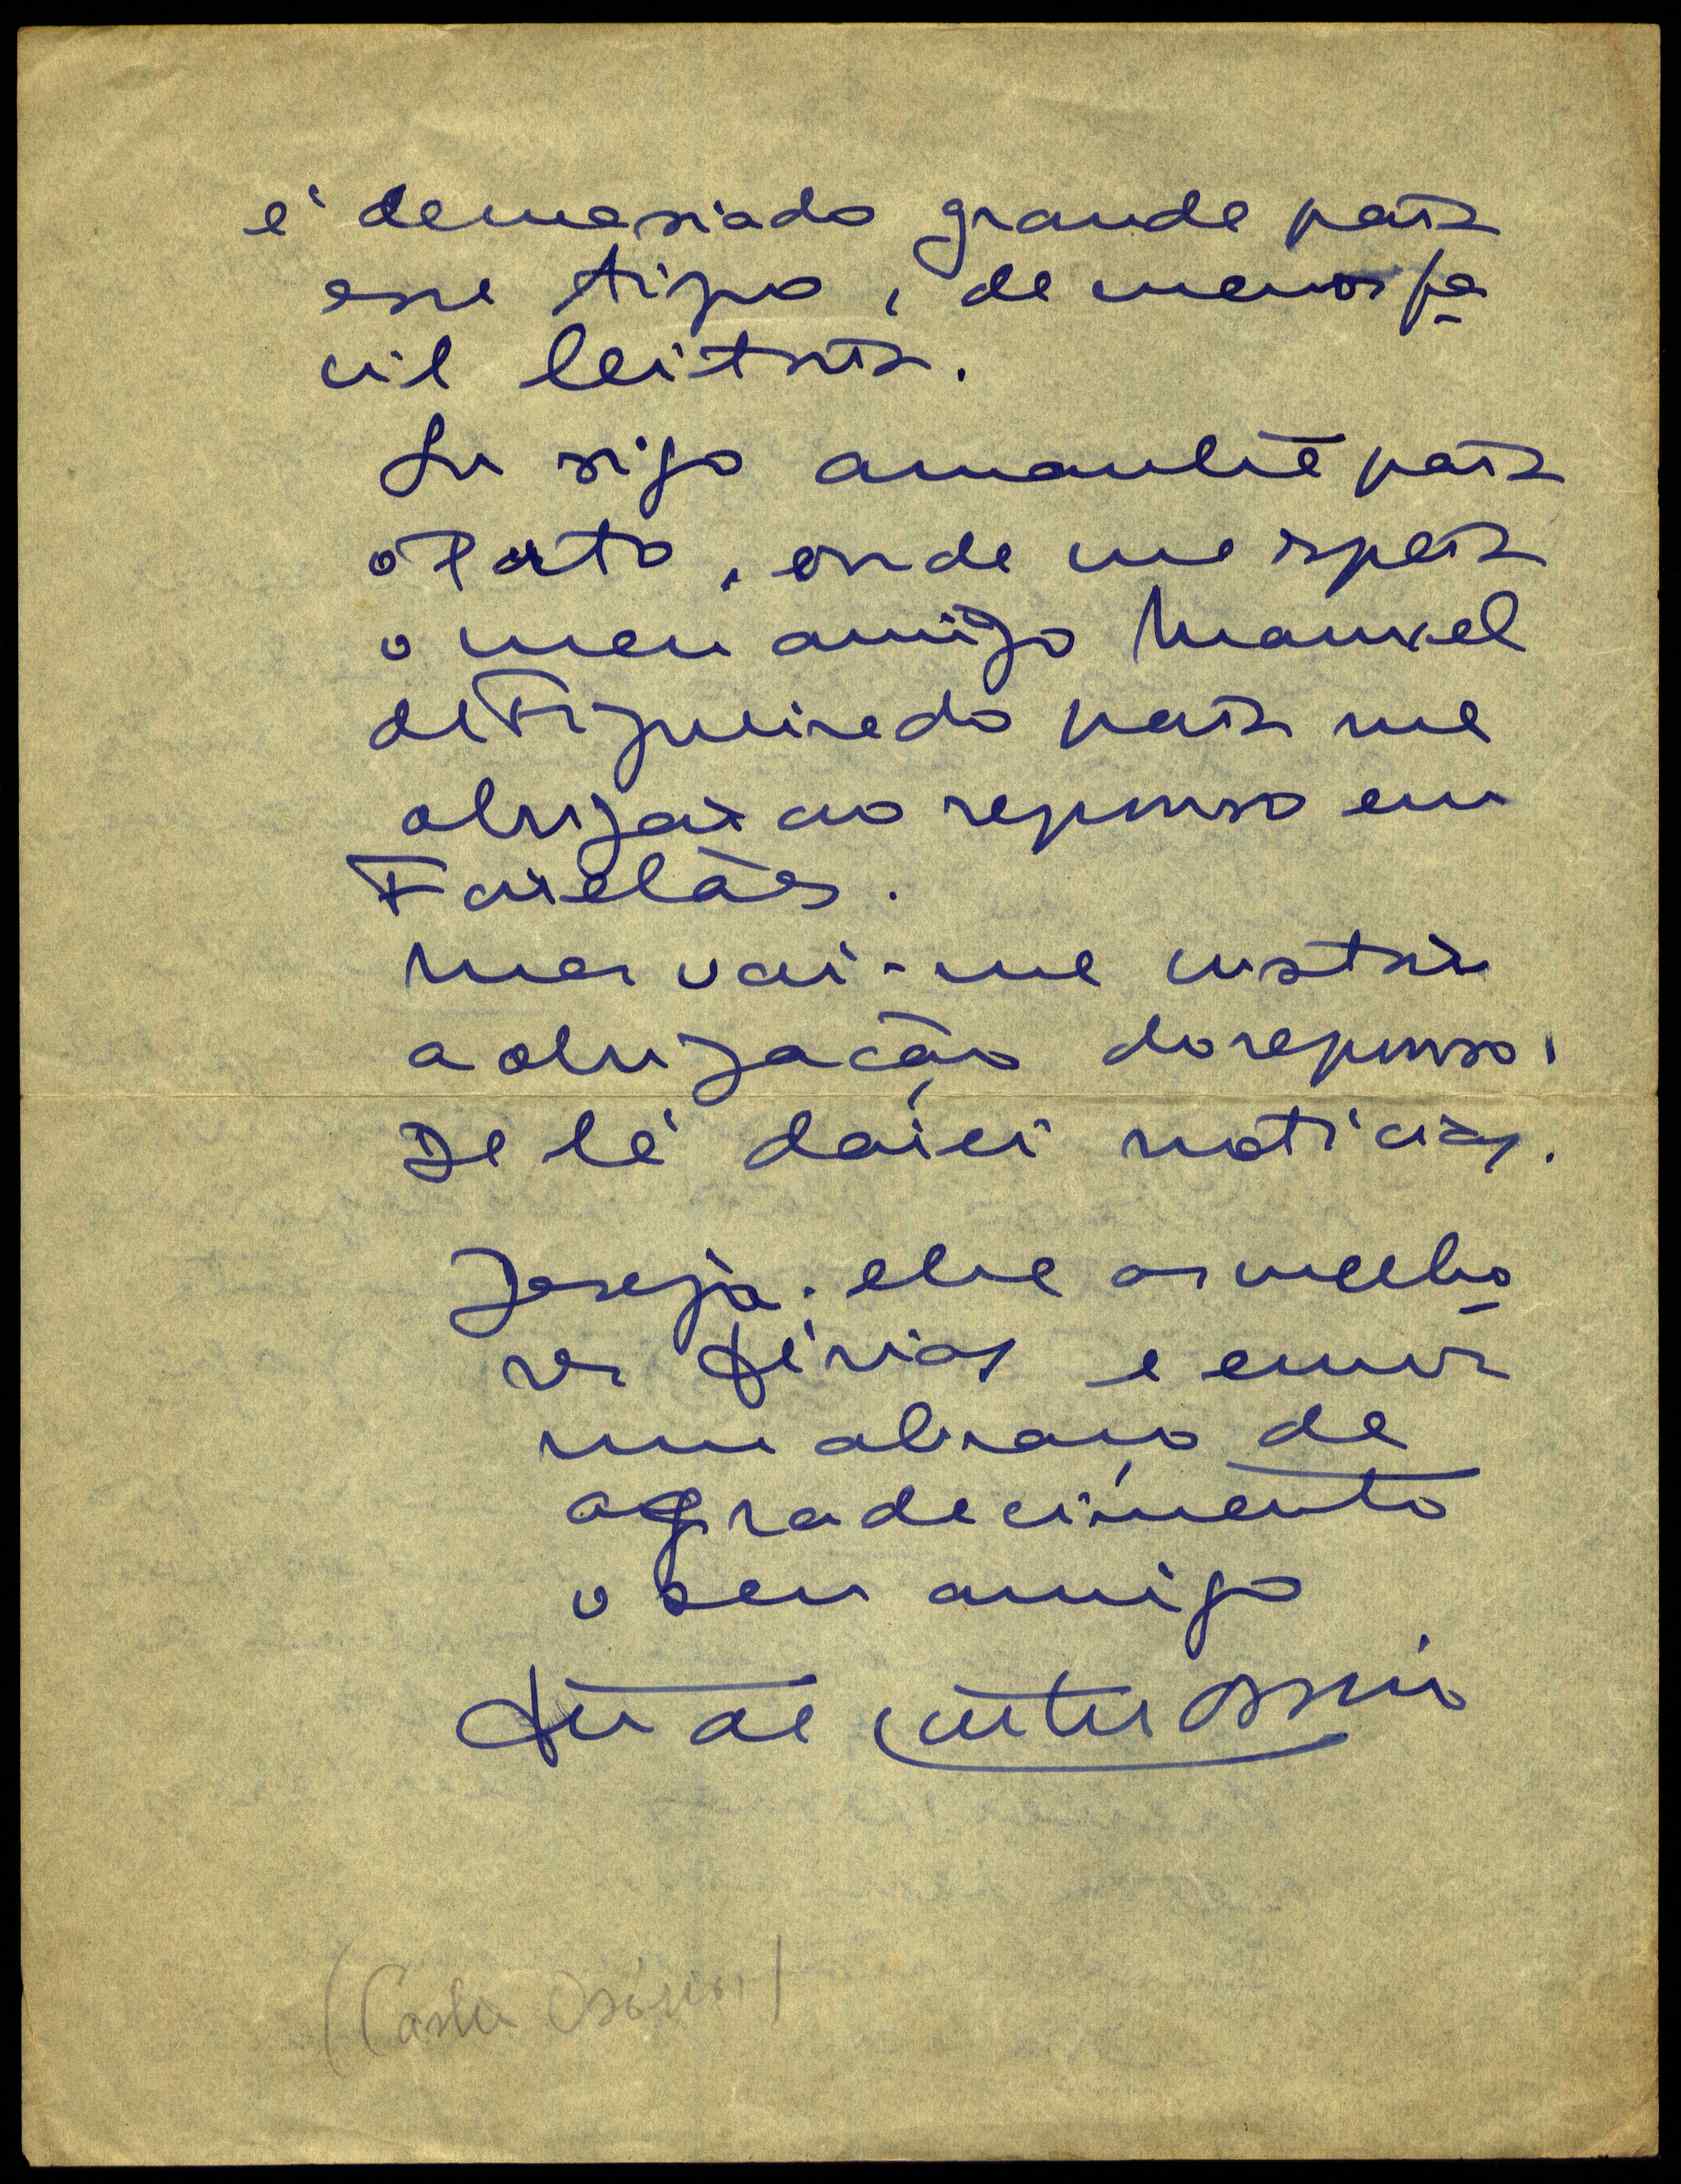 é demasiado grande para
esse tipo, de menos fa
cil leitura.
Eu sigo amanhã para
o Porto, onde me espera
o meu amigo Manuel
de Figueiredo para me
obrigar ao repouso em
Farelães.
Mas vai-me custar
a obrigação do repouso.
De lá darei noticias.
Deseja-lhe as melho
res férias e envia
um abraço de
agradecimento
o seu amigo
João de Castro Osório
(Castro Osório)